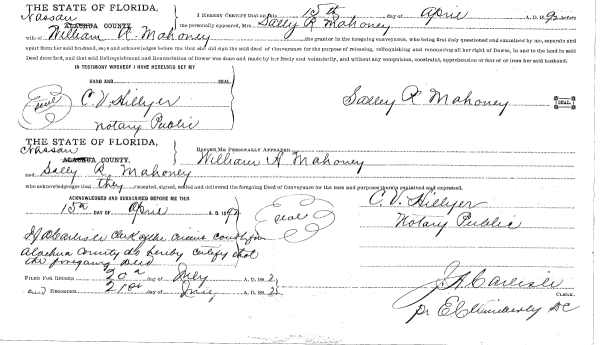 THE STATE OF FLORIDA,
Nassau
ALACHUA COUNTY.
I HEREBY CERTIFY that on this 15th day of April A. D. 1892 before
me personally appeared, Mrs. Sally R Mahoney
wife of William A. Mahoney the grantor in the foregoing conveyance, who being first duly questioned and examined by me, separate and
apart from her said husband, says and acknowledges before me that she did sign the said deed of Conveyance for the purpose of releasing, relinquishing and renouncing all her right of Dower, in and to the land in said
Deed described, and that said Relinquishment and Renunciation of Dower was done and made by her freely and voluntarily, and without any compulsion, constraint, apprehension or fear of or from her said husband.
IN TESTIMONY WHEREOF I HAVE HERETO SET MY
HAND AND SEAL.
Seal
C. V. Hillyer
Notary Public
Salley R Mahoney
SEAL.
THE STATE OF FLORIDA,
Nassau
ALACHUA COUNTY.
BEFORE ME PERSONALLY APPEARED
William A Mahoney
and Sally R. Mahoney
who acknowledges that they executed, signed, sealed and delivered the foregoing Deed of Conveyance for the uses and purposes therein contained and expressed.
ACKNOWLEDGED AND SUBSCRIBED BEFORE ME THIS
15th DAY OF April A. D. 1892
Seal
C. V. Hillyer
Notary Public
Clerk of the Circuit Court for
Alachua County do hereby certify that
the foregoing Deed
FILED FOR RECORD 20th day of July A. D. 1892
and RECORDED 21st day of July A. D. 1892
J. A. Carlisle
CLERK.
pr E C DC